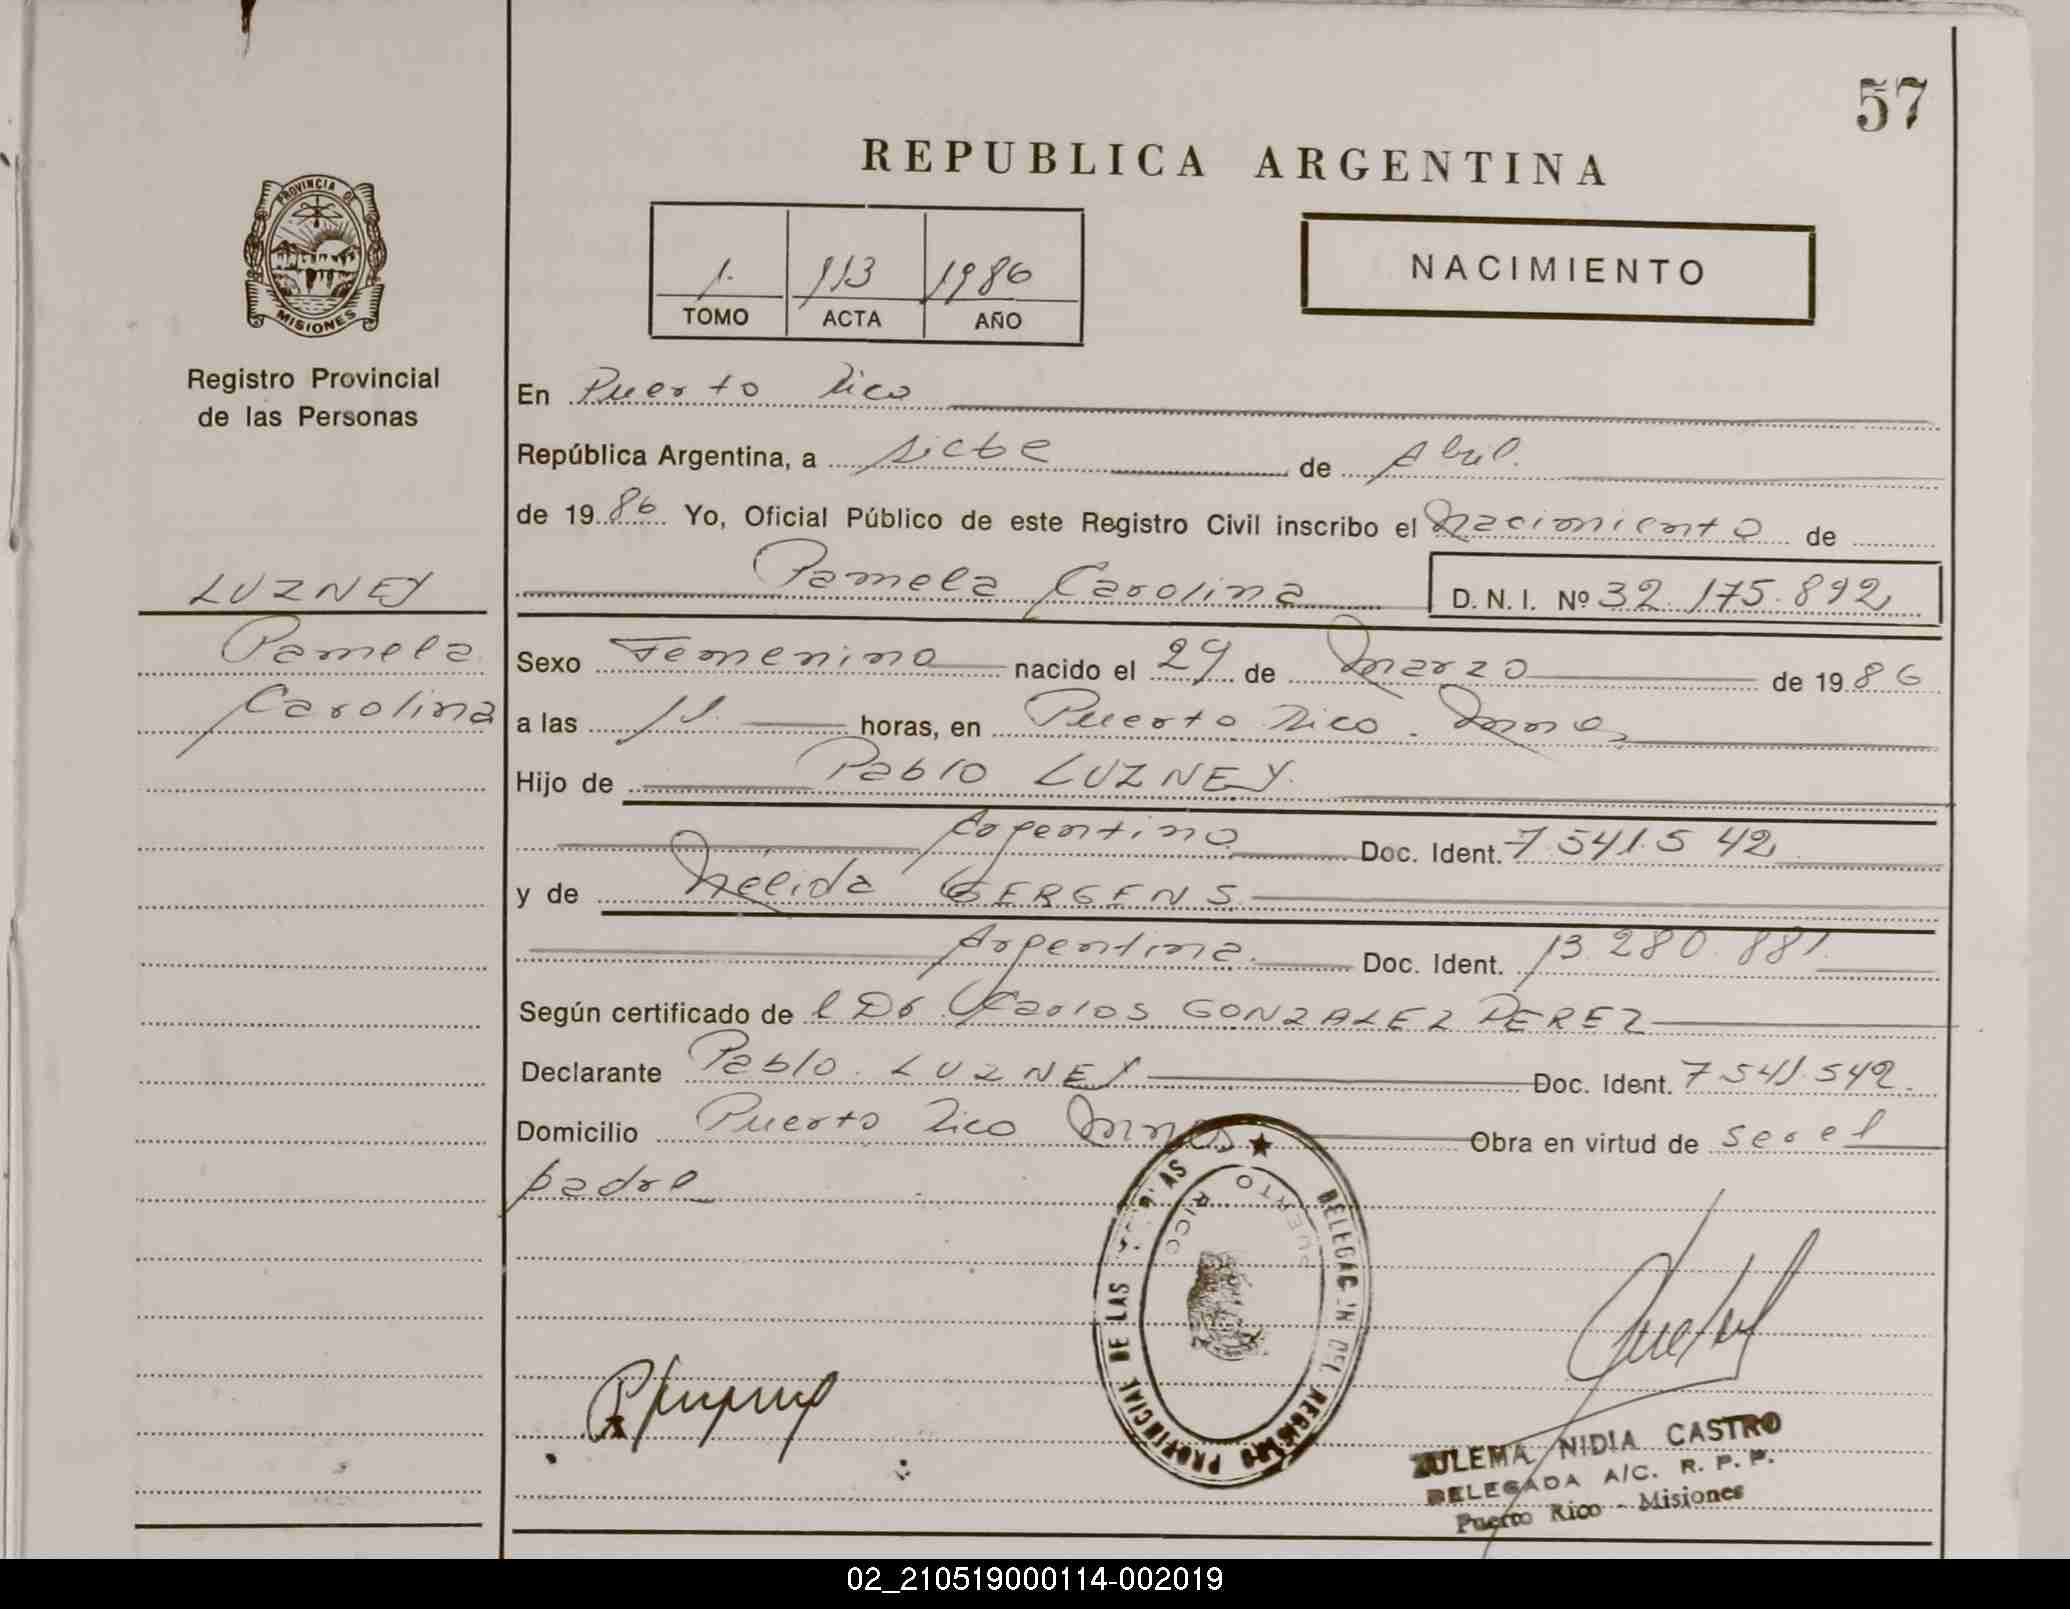 57
REPUBLICA ARGENTINA
PROVINCIA DE
MISIONES
Registro Provincial
de las Personas
1. 113 1986
TOMO ACTA AÑO
NACIMIENTO
En Puerto Rico
República Argentina, a siete de Abril.
de 1986 Yo, Oficial Público de este Registro Civil inscribo el Nacimiento de
LUZNEY
Pamela
Carolina
Pamela Carolina D. N. I. Nº 32.175.892
Sexo Femenino nacido el 29 de Marzo de 1986
a las 11. horas, en Puerto Rico. Mnes
Hijo de Pablo LUZNEY.
Argentino Doc. Ident. 7.541.542
y de Nélida GERGENS
Argentina. Doc. Ident. 13.280.881
Según certificado de l Dr Carlos GONZALEZ PEREZ
Declarante Pablo. LUZNEY Doc. Ident. 7.541.542.
Domicilio Puerto Rico Mnes Obra en virtud de ser el
padre
PUERTO RICO
DEL REGISTRO PROVINCIAL DE LAS
ZULEMA NIDIA CASTRO
DELEGADA A/C. R. P. P.
Puerto Rico - Misiones
02_210519000114-002019